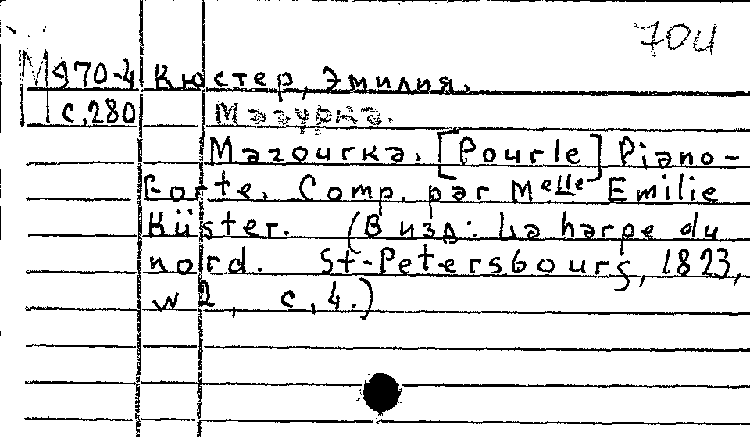 704
М 970-4 Кюстер, Эмилия.
с.280 Мазурка.
Mazourka. [Pour le] Piano-
Forte. Comp. par Melle Emilie
Küster. (В изд: La harpe du
nord. St-Petersbourg, 1823,
N 2, с.4.)